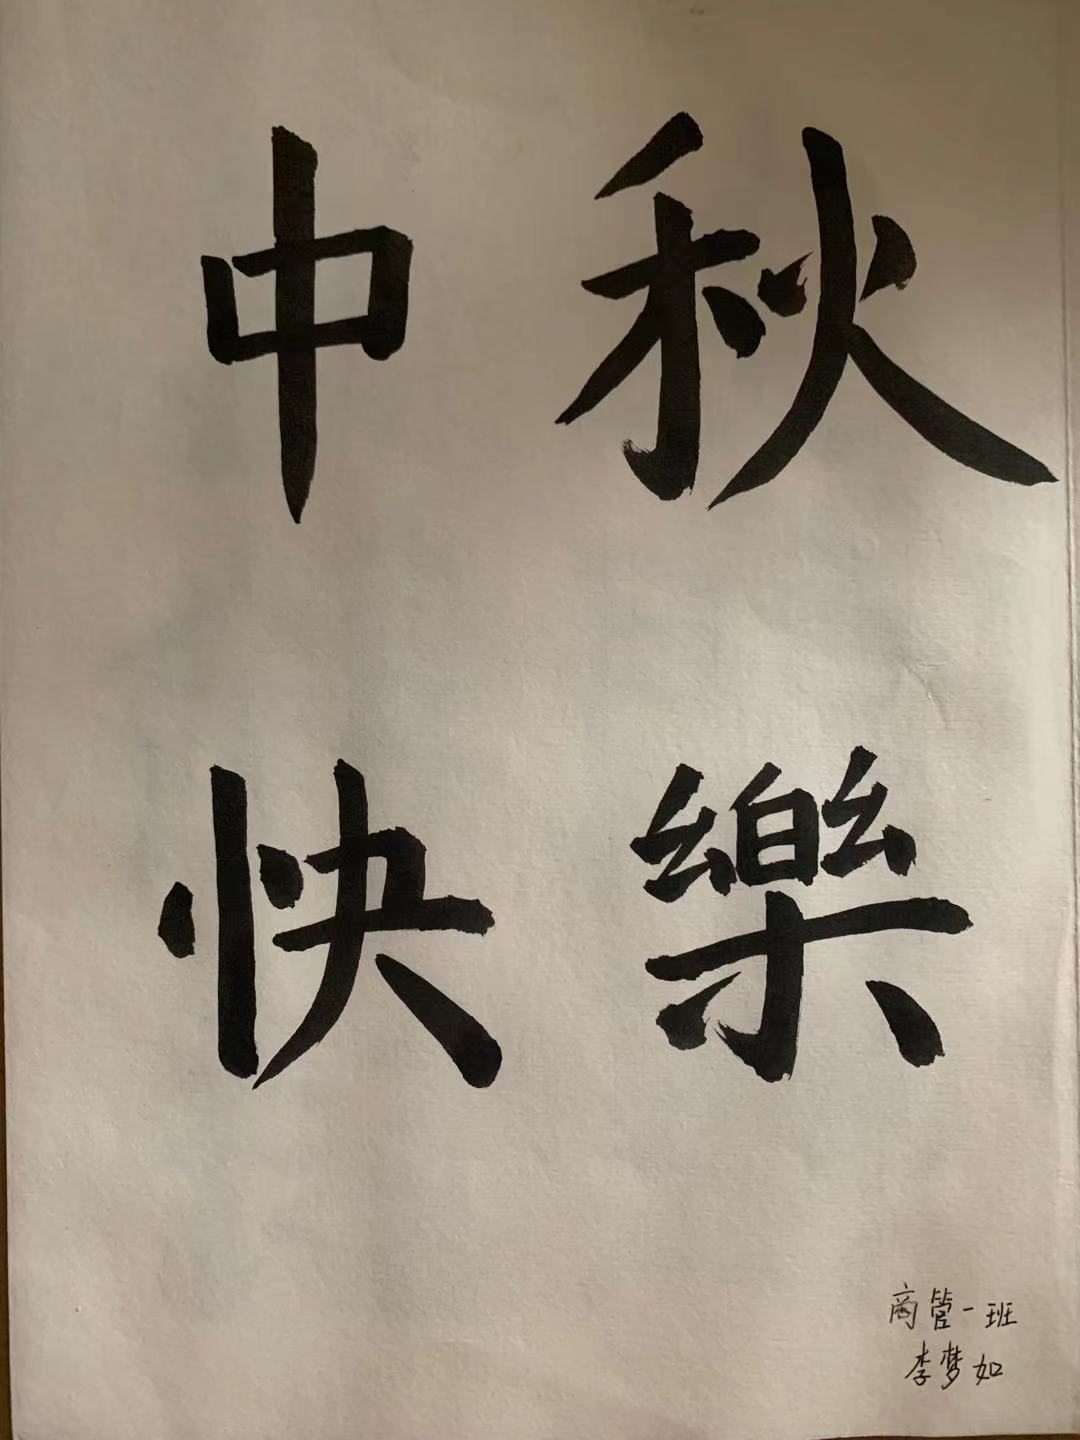 中秋
快樂
商管一班
李梦如